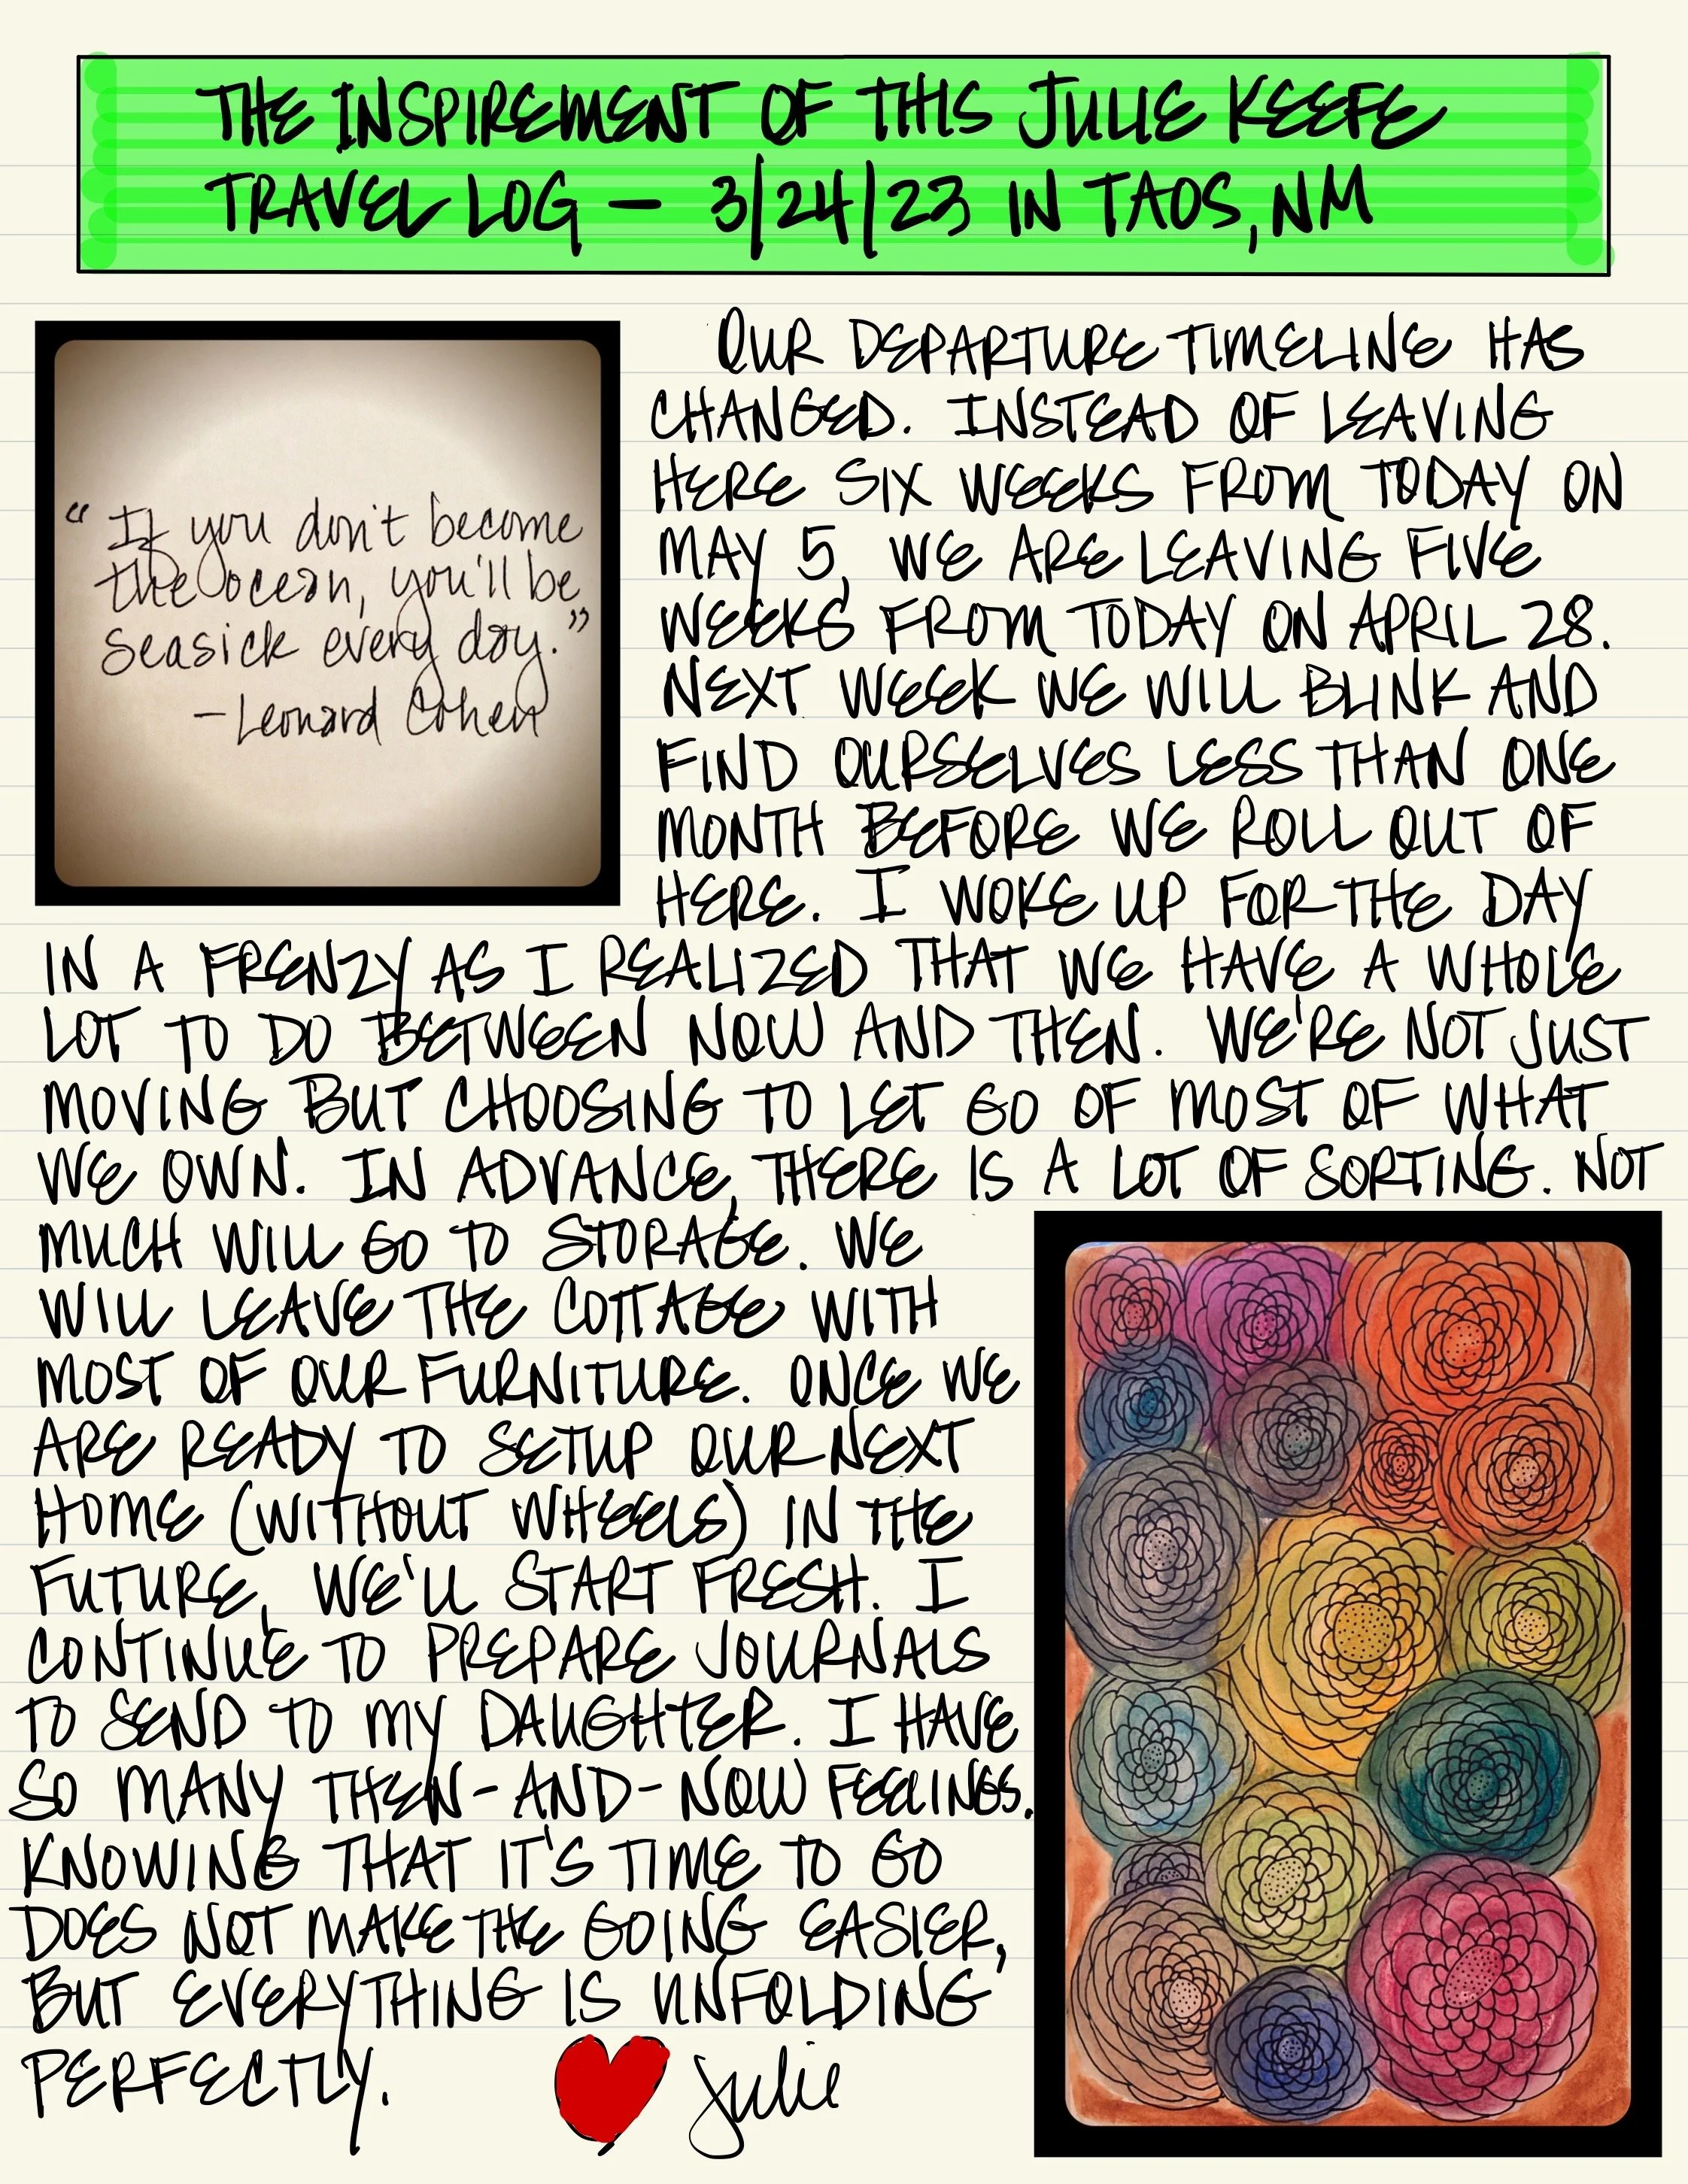 THE INSPIREMENT OF THIS JULIE KEEFE
TRAVEL LOG — 3/24/23 IN TAOS, NM
"If you don't become
the ocean, you'll be
seasick every day."
—Leonard Cohen
OUR DEPARTURE TIMELINE HAS
CHANGED. INSTEAD OF LEAVING
HERE SIX WEEKS FROM TODAY ON
MAY 5, WE ARE LEAVING FIVE
WEEKS FROM TODAY ON APRIL 28.
NEXT WEEK WE WILL BLINK AND
FIND OURSELVES LESS THAN ONE
MONTH BEFORE WE ROLL OUT OF
HERE. I WOKE UP FOR THE DAY
IN A FRENZY AS I REALIZED THAT WE HAVE A WHOLE
LOT TO DO BETWEEN NOW AND THEN. WE'RE NOT JUST
MOVING BUT CHOOSING TO LET GO OF MOST OF WHAT
WE OWN. IN ADVANCE, THERE IS A LOT OF SORTING. NOT
MUCH WILL GO TO STORAGE. WE
WILL LEAVE THE COTTAGE WITH
MOST OF OUR FURNITURE. ONCE WE
ARE READY TO SETUP OUR NEXT
HOME (WITHOUT WHEELS) IN THE
FUTURE, WE'LL START FRESH. I
CONTINUE TO PREPARE JOURNALS
TO SEND TO MY DAUGHTER. I HAVE
SO MANY THEN-AND-NOW FEELINGS.
KNOWING THAT IT'S TIME TO GO
DOES NOT MAKE THE GOING EASIER,
BUT EVERYTHING IS UNFOLDING
PERFECTLY.
Julie